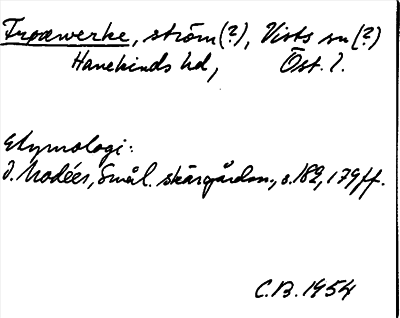 Trowerke, ström(?), Vists sn(?)
Hanekinds hd, Öst. l.
Etymologi:
J. Modéer, Smål. skärgårdsn., s. 182, 179 ff.
C.B. 1954